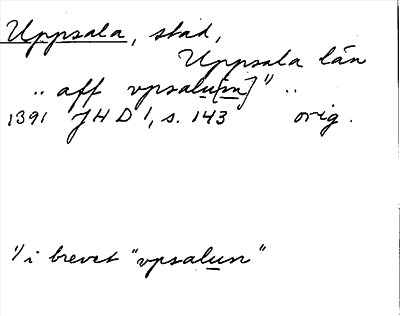 Uppsala, stad,
Uppsala län
.. aff vpsalu[m]¹⁾ ..
1391 JHD 1, s. 143 orig.
¹⁾ i brevet "vpsalun"